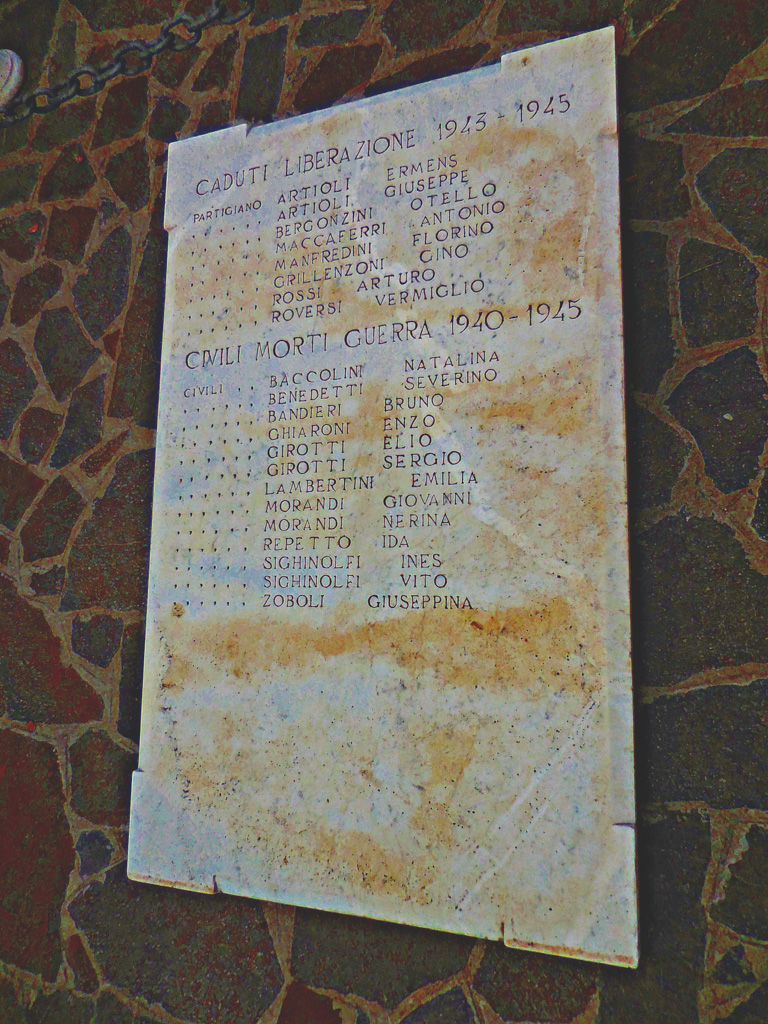 CADUTI LIBERAZIONE 1943 - 1945
PARTIGIANO ARTIOLI ERMENS
" " " ARTIOLI GIUSEPPE
" " " BERGONZINI OTELLO
" " " MACCAFERRI ANTONIO
" " " MANFREDINI FLORINO
" " " GRILLENZONI GINO
" " " ROSSI ARTURO
" " " ROVERSI VERMIGLIO
CIVILI MORTI GUERRA 1940 - 1945
CIVILI " BACCOLINI NATALINA
" " " BENEDETTI SEVERINO
" " " BANDIERI BRUNO
" " " GHIARONI ENZO
" " " GIROTTI ELIO
" " " GIROTTI SERGIO
" " " LAMBERTINI EMILIA
" " " MORANDI GIOVANNI
" " " MORANDI NERINA
" " " REPETTO IDA
" " " SIGHINOLFI INES
" " " SIGHINOLFI VITO
" " " ZOBOLI GIUSEPPINA